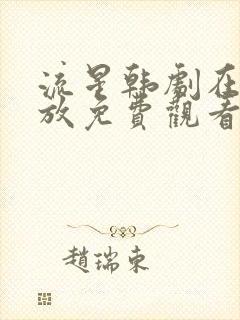 流星韩劇在
放免費觀看
趙瑞東